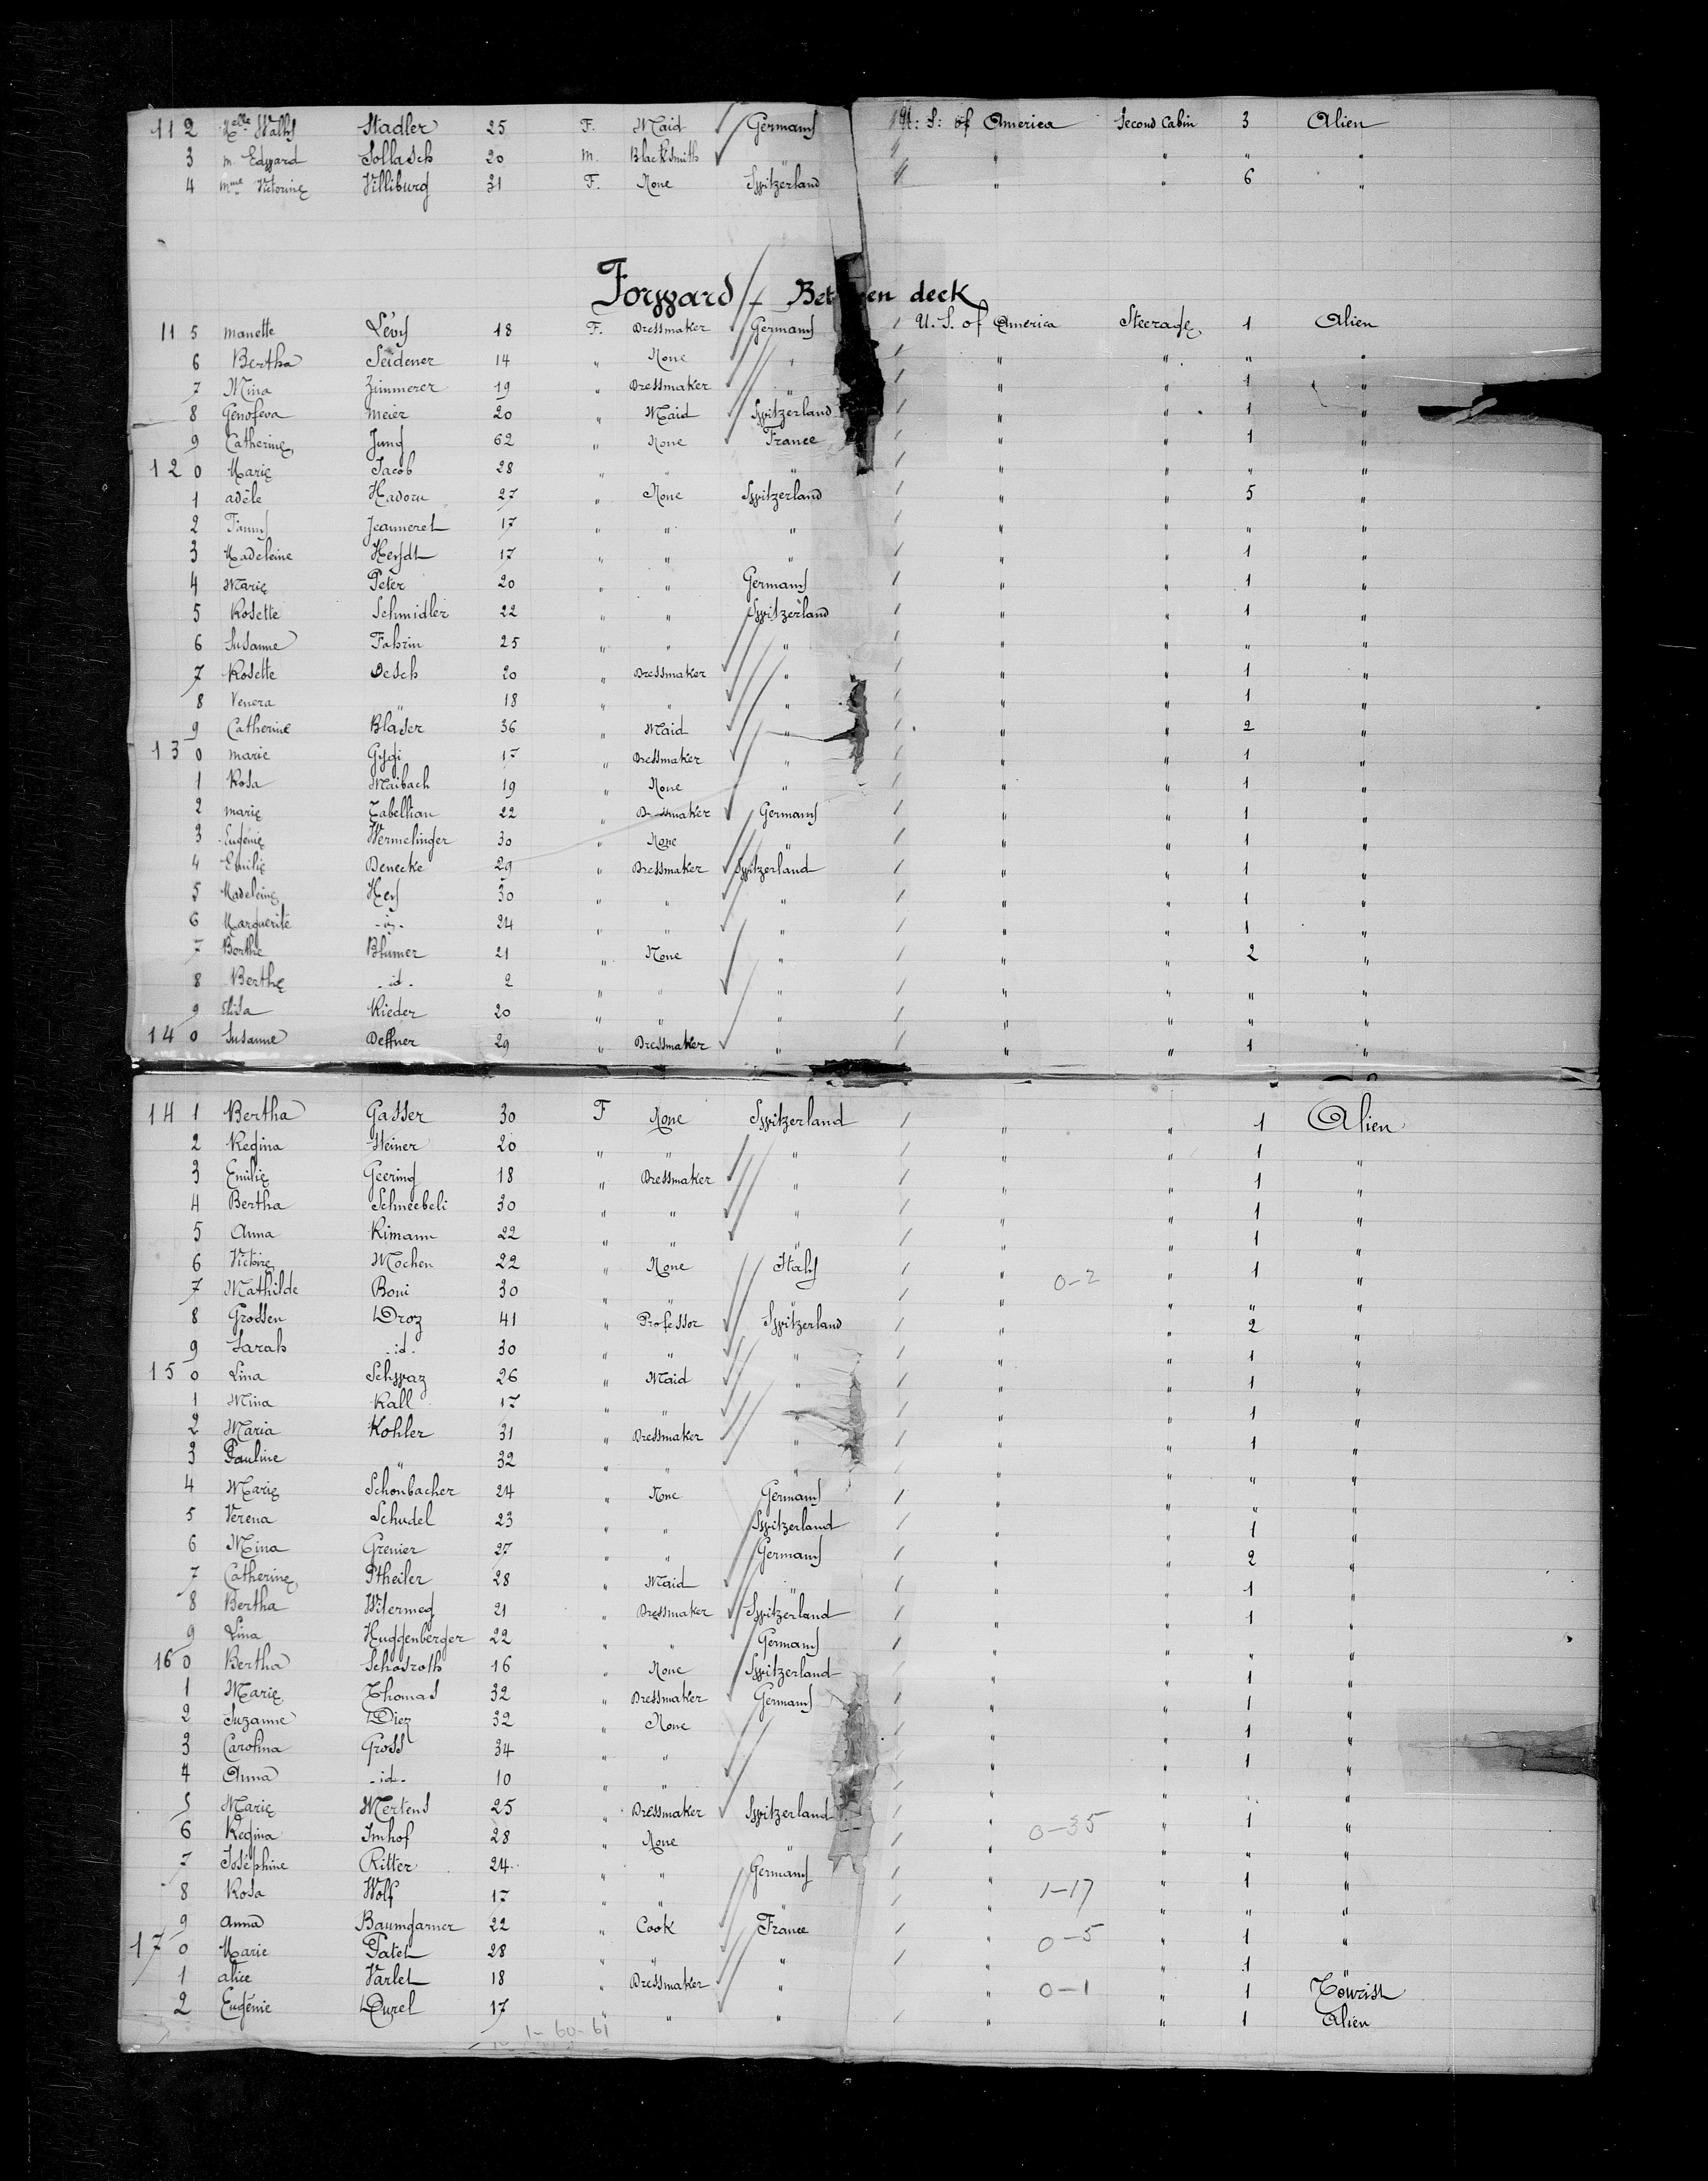 112 Melle Wally Stadler 25 F. Maid Germany U: S: of America Second Cabin 3 Alien
3 m. Edward Sollasch 20 m. Blacksmith " " " " "
4 mme Victorine Villiburg 31 F. None Switzerland " " 6 "
Forward / Between deck
115 Manette Lévy 18 F. Dressmaker Germany U. S. of America Steerage 1 Alien
6 Bertha Seidener 14 " None " " " " "
7 Mina Zimmerer 19 " Dressmaker " " " 1 "
8 Genofeva Meier 20 " Maid Switzerland " " 1 "
9 Catherine Jung 62 " None France " " 1 "
120 Marie Jacob 28 " " " " " " "
1 adèle Hadorn 27 " None Switzerland " " 5 "
2 Fanny Jeanneret 17 " " " " " " "
3 Madeleine Heydt 17 " " " " " 1 "
4 Marie Peter 20 " " Germany " " 1 "
5 Rosette Schmidler 22 " " Switzerland " " 1 "
6 Susanne Fahrin 25 " " " " " " "
7 Rosette Oesch 20 " Dressmaker " " " 1 "
8 Venera " 18 " " " " " 1 "
9 Catherine Bläser 36 " Maid " " " 2 "
130 Marie Gygi 17 " Dressmaker " " " 1 "
1 Rosa Maibach 19 " None " " " 1 "
2 Marie Tabellian 22 " Dressmaker Germany " " 1 "
3 Eugénie Wermelinger 30 " None " " " 1 "
4 Emilie Denecke 29 " Dressmaker Switzerland " " 1 "
5 Madeleine Hey 30 " " " " " 1 "
6 Marguerite - id - 24 " " " " " 1 "
7 Berthe Blumer 21 " None " " " 2 "
8 Berthe . id . 2 " " " " " " "
9 Elisa Rieder 20 " " " " " " "
140 Susanne Deffner 29 " Dressmaker " " " 1 "
141 Bertha Gasser 30 F None Switzerland " " 1 Alien
2 Regina Steiner 20 " " " " " 1 "
3 Emilie Geering 18 " Dressmaker " " " 1 "
4 Bertha Schneebeli 30 " " " " " 1 "
5 Anna Rimann 22 " " " " " 1 "
6 Victoire Mochen 22 " None Italy " 0-2 " 1 "
7 Mathilde Boni 30 " " " " " " "
8 Grossen Droz 41 " Professor Switzerland " " 2 "
9 Sarah . id . 30 " " " " " 1 "
150 Lina Schwaz 26 " Maid " " " 1 "
1 Mina Rall 17 " " " " " 1 "
2 Maria Kohler 31 " Dressmaker " " " 1 "
3 Pauline " 32 " " " " " " "
4 Marie Schönbacher 24 " None Germany " " " "
5 Verena Schudel 23 " " Switzerland " " 1 "
6 Mina Grenier 27 " " Germany " " 2 "
7 Catherine Ptheiler 28 " Maid " " " 1 "
8 Bertha 21 " Dressmaker Switzerland " " 1 "
9 Lina Huggenberger 22 " " Germany " " " "
160 Bertha Schosroth 16 " None Switzerland " " 1 "
1 Marie Thomas 32 " Dressmaker Germany " " 1 "
2 Suzanne Diez 32 " None " " 1 "
3 Carolina Gross 34 " " " " 1 "
4 Anna - id - 10 " " " " " "
5 Marie Mertens 25 " Dressmaker Switzerland " " 1 "
6 Regina Imhof 28 " None " " 0-35 " " "
7 Joséphine Ritter 24 " " Germany " " 1 "
8 Rosa Wolf 17 " " " " 1-17 " " "
9 Anna Baumgarner 22 " Cook France " 0-5 " 1 "
170 Marie Patet 28 " " " " " 1 "
1 alice Varlet 18 " Dressmaker " " 0-1 " 1 Tourist
2 Eugénie Durel 17 " " " " " 1 Alien
1-60-61